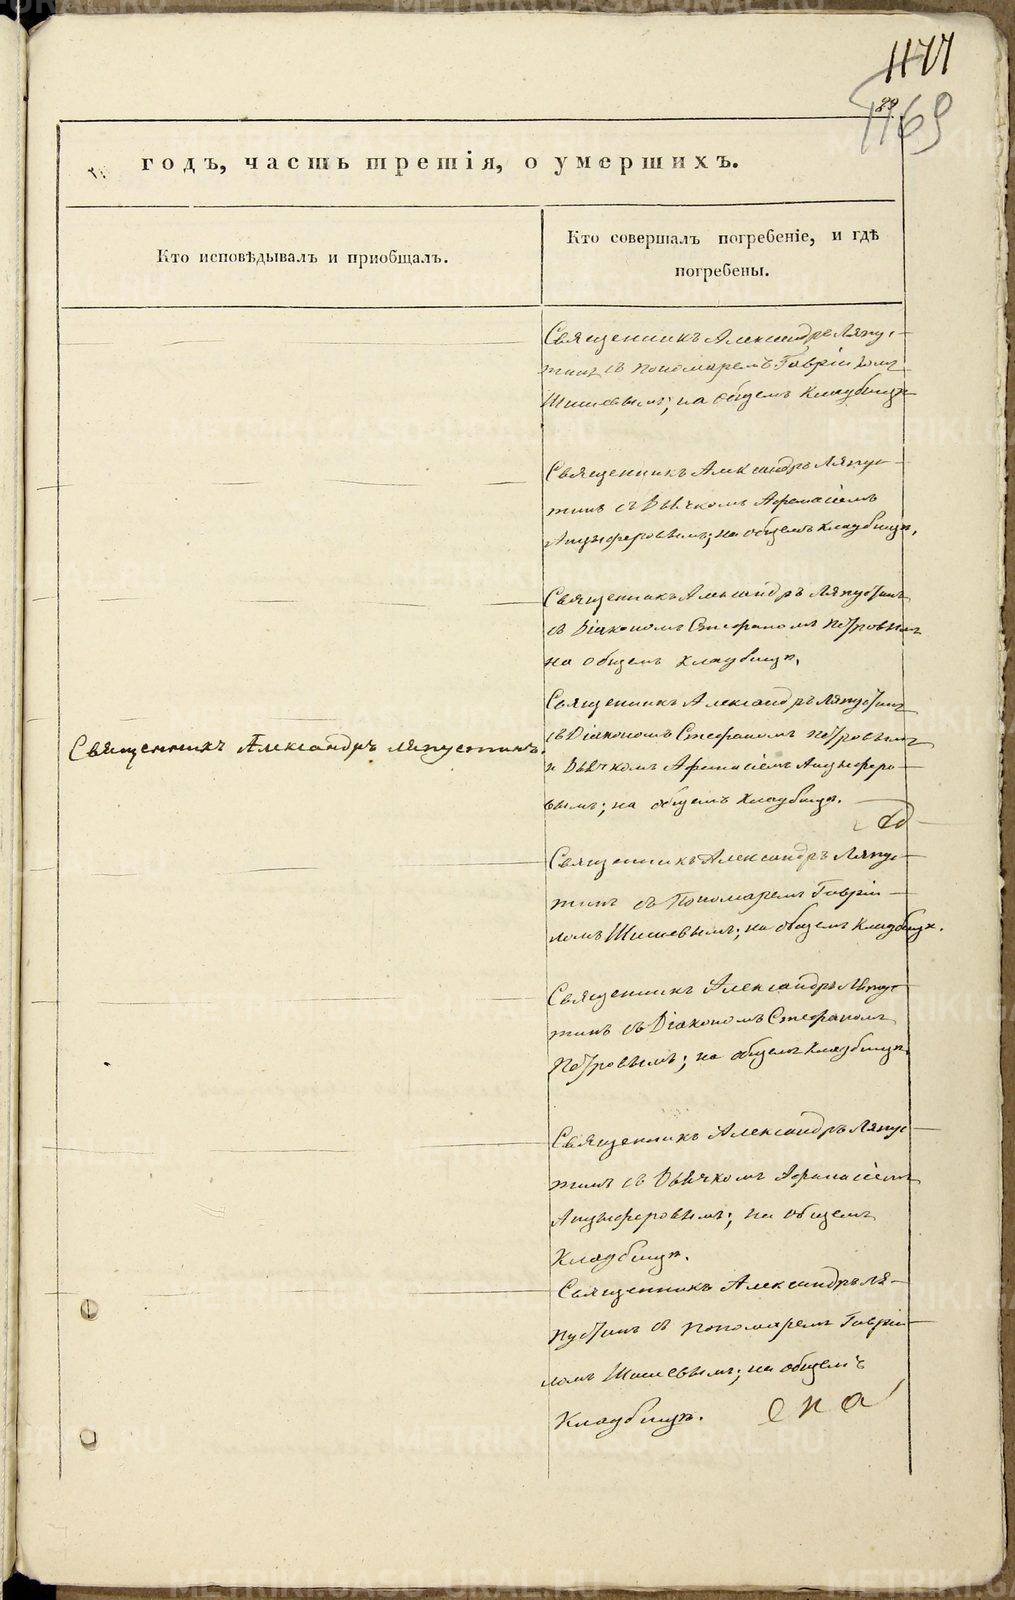 1177
29
1169
годъ, часть третія, о умершихъ.
Кто исповѣдывалъ и пріобщалъ.
Кто совершалъ погребеніе, и гдѣ
погребены.
Священникъ Александръ Ляпус-
тинъ съ пономаремъ Гавріиломъ
Шишевымъ; на общемъ кладбищѣ
Священникъ Александръ Ляпус-
тинъ съ Дьячкомъ Афанасіемъ
Анцыферовымъ; на общемъ кладбищѣ,
Священникъ Александръ Ляпустинъ
съ Діакономъ Стефаномъ Петровымъ
на общемъ кладбищѣ,
Священникъ Александръ Ляпустинъ
съ Діакономъ Стефаномъ Петровымъ
Священникъ Александръ Ляпустинъ.
и Дьячкомъ Афанасіемъ Анцыферо-
вымъ; на общемъ кладбищѣ.
Священникъ Александръ Ляпус-
тинъ съ Пономаремъ Гавріи-
ломъ Шишевымъ; на общемъ кладбищѣ.
Священникъ Александръ Ляпус-
тинъ съ Діакономъ Стефаномъ
Петровымъ; на общемъ кладбищѣ
Священникъ Александръ Ляпус-
тинъ съ Дьячкомъ Афанасіемъ
Анцыферовымъ; на общемъ
кладбищѣ.
Священникъ Александръ Ля-
пустинъ съ пономаремъ Гавріи-
ломъ Шишевымъ; на общемъ
кладбищѣ.